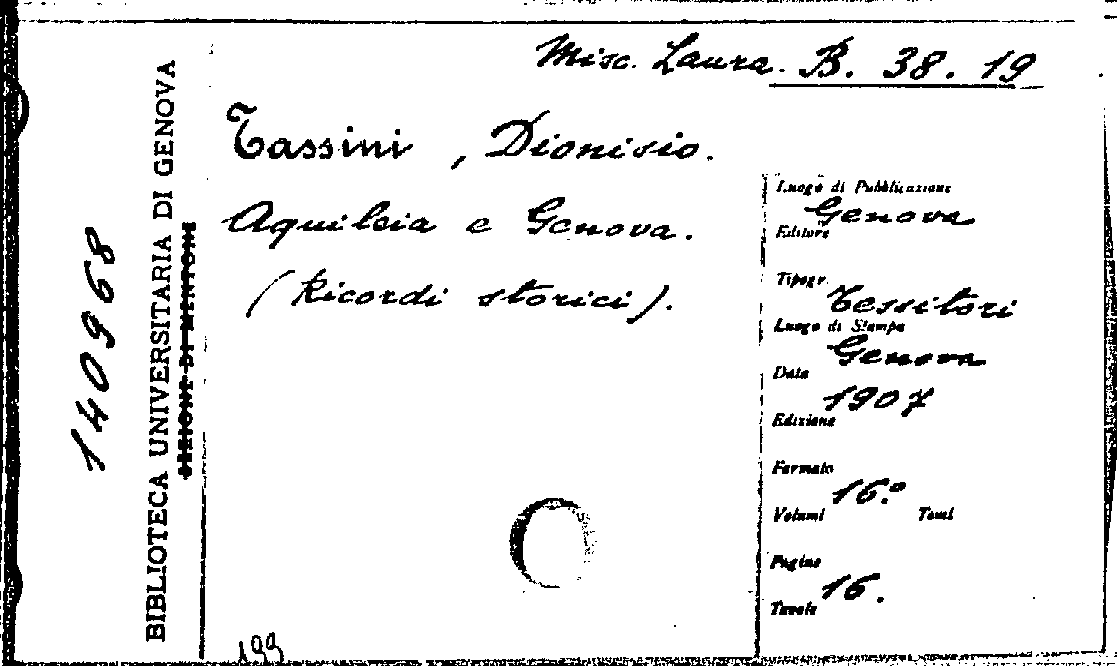 Misc. Laura. B. 38. 19
Tassini, Dionisio.
Aquileia e Genova.
(Ricordi storici).
Luogo di Pubblicazione
Genova
Editore
Tipogr.
Tessitori
Luogo di Stampa
Genova
Data
1907
Edizione
Formato
16.º
Volumi Tomi
Pagine
16.
Tavole
140968
BIBLIOTECA UNIVERSITARIA DI GENOVA
SEZIONE DI MENTONE
199